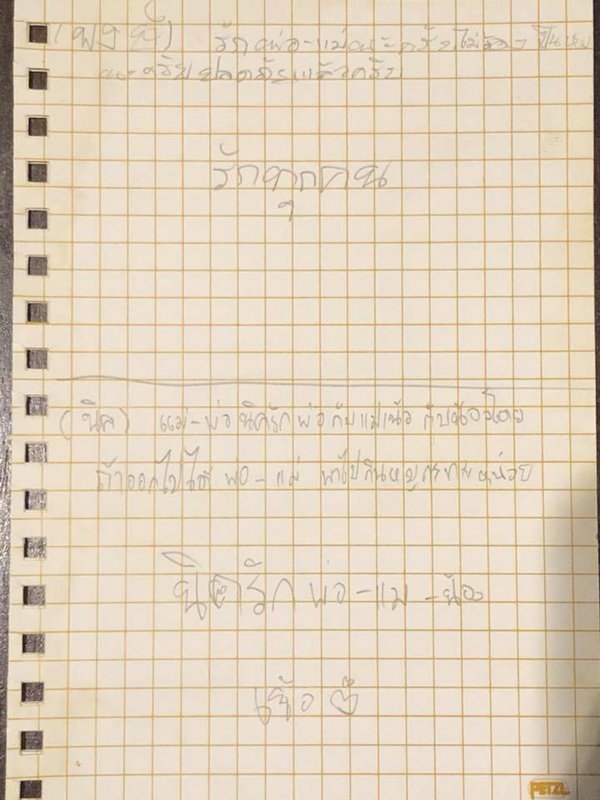 (พงษ์) รักพ่อ-แม่นะครับไม่ต้องเป็นห่วง
นะครับ ปลอดภัยแล้วครับ
รักทุกคน
(นิค) แม่-พ่อ นิครักพ่อกับแม่เน้อ กับน้องโตย
ถ้าออกไปได้ พ่อ-แม่ พาไปกินหมูกระทะ หน่อย
นิครัก พ่อ-แม่-น้อง
เน้อ
PETZL